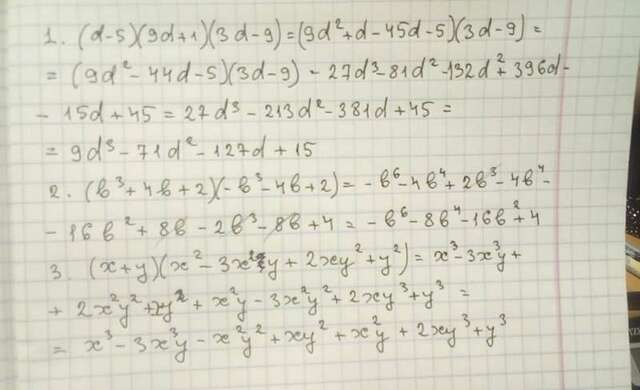 1. (d-5)(9d+1)(3d-9)=(9d²+d-45d-5)(3d-9)=
=(9d²-44d-5)(3d-9)-27d³-81d²-132d²+396d-
-15d+45=27d³-213d²-381d+45=
=9d³-71d²-127d+15
2. (b³+4b+2)(-b³-4b+2)=-b⁶-4b⁴+2b³-4b⁴-
-16b²+8b-2b³-8b+4=-b⁶-8b⁴-16b²+4
3. (x+y)(x²-3x²y+2xy²+y²)=x³-3x³y+
+2x²y²+xy²+x²y-3x²y²+2xy³+y³=
=x³-3x³y-x²y²+xy²+x²y+2xy³+y³